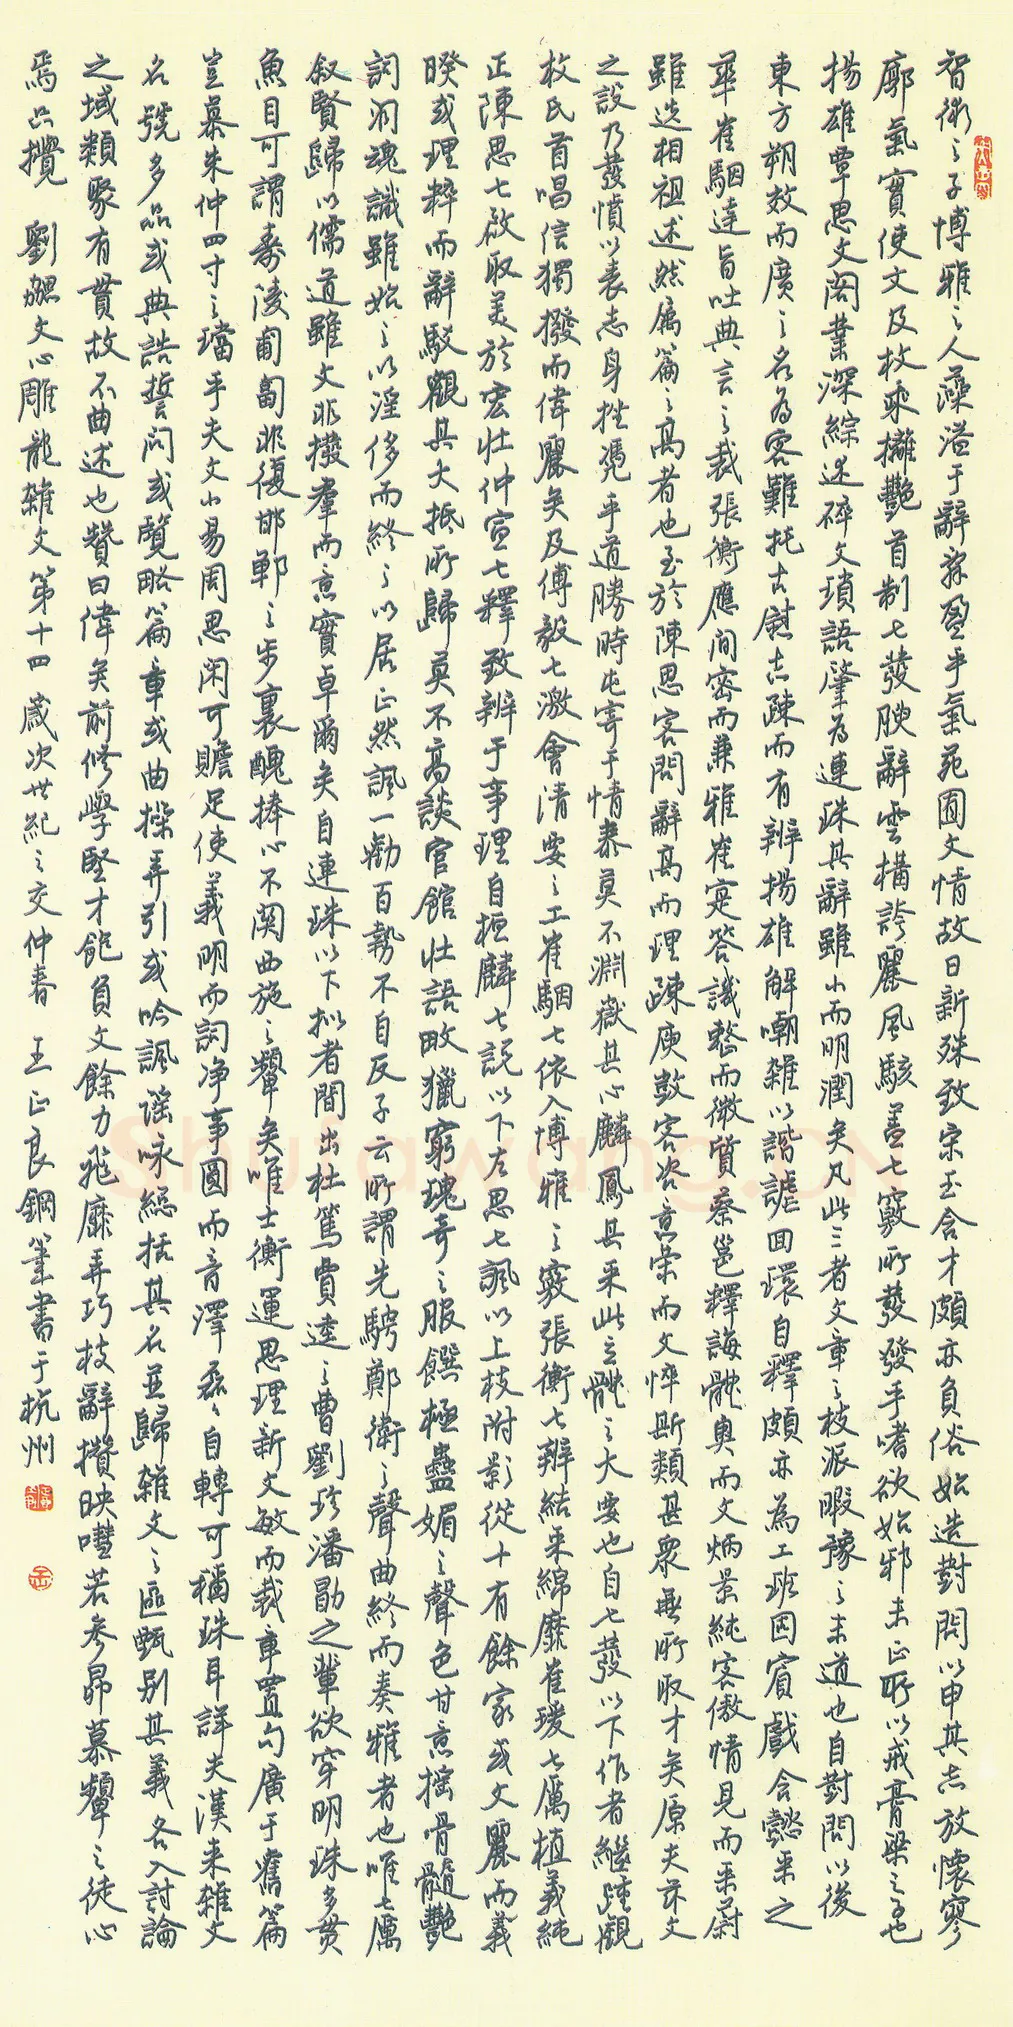 智術之子博雅之人藻溢于辭辭盈乎氣苑囿文情故日新殊致宋玉含才頗亦負俗始造對問以申其志放懷寥
廓氣實使文及枚乘攡艷首制七發腴辭雲構誇麗風駭蓋七竅所發發乎嗜欲始邪末正所以戒膏粱之子也
揚雄覃思文閣業深綜述碎文瑣語肇為連珠其辭雖小而明潤矣凡此三者文章之枝派暇豫之末造也自對問以後
東方朔效而廣之名為客難托古慰志疎而有辨揚雄解嘲雜以諧謔回環自釋頗亦為工班固賓戲含懿采之
華崔駰達旨吐典言之裁張衡應間密而兼雅崔寔答譏整而微質蔡邕釋誨體奧而文炳景純客傲情見而采蔚
雖迭相祖述然屬篇之高者也至於陳思客問辭高而理疎庾敳客咨意榮而文悴斯類甚衆無所取才矣原夫茲文
之設乃發憤以表志身挫憑乎道勝時屯寄于情泰莫不淵嶽其心麟鳳其采此立體之大要也自七發以下作者繼踵觀
枚氏首唱信獨撥而偉麗矣及傅毅七激會清要之工崔駰七依入博雅之竅張衡七辨結采綿靡崔瑗七厲植義純
正陳思七啟取美於宏壯仲宣七釋致辨于事理自桓麟七說以下左思七諷以上枝附影從十有餘家或文麗而義
暌或理粹而辭駁觀其大抵所歸莫不高談宮館壯語畋獵窮瑰奇之服饌極蠱媚之聲色甘意搖骨髓艷
詞洞魂識雖始之以淫侈而終之以居正然諷一勸百勢不自反子云所謂先騁鄭衛之聲曲終而奏雅者也唯七厲
叙賢歸以儒道雖文非撥羣而意實卓爾矣自連珠以下擬者間出杜篤賈逵之曹劉珍潘勖之輩欲穿明珠多貫
魚目可謂壽陵匍匐非復邯鄲之步裏醜捧心不關西施之顰矣唯士衡運思理新文敏而裁章置句廣于舊篇
豈慕朱仲四寸之璫乎夫文小易周思閑可贍足使義明而詞净事圓而音澤磊磊自轉可稱珠耳詳夫漢來雜文
名號多品或典誥誓問或覽略篇章或曲操弄引或吟諷謡咏總括其名並歸雜文之區甄别其義各入討論
之域類聚有貫故不曲述也贊曰偉矣前修學堅才飽負文餘力飛靡弄巧枝辭攢映嚖若參昴慕顰之徒心
焉只攪 劉勰文心雕龍雜文第十四 歲次世紀之交仲春 王正良鋼筆書于杭州